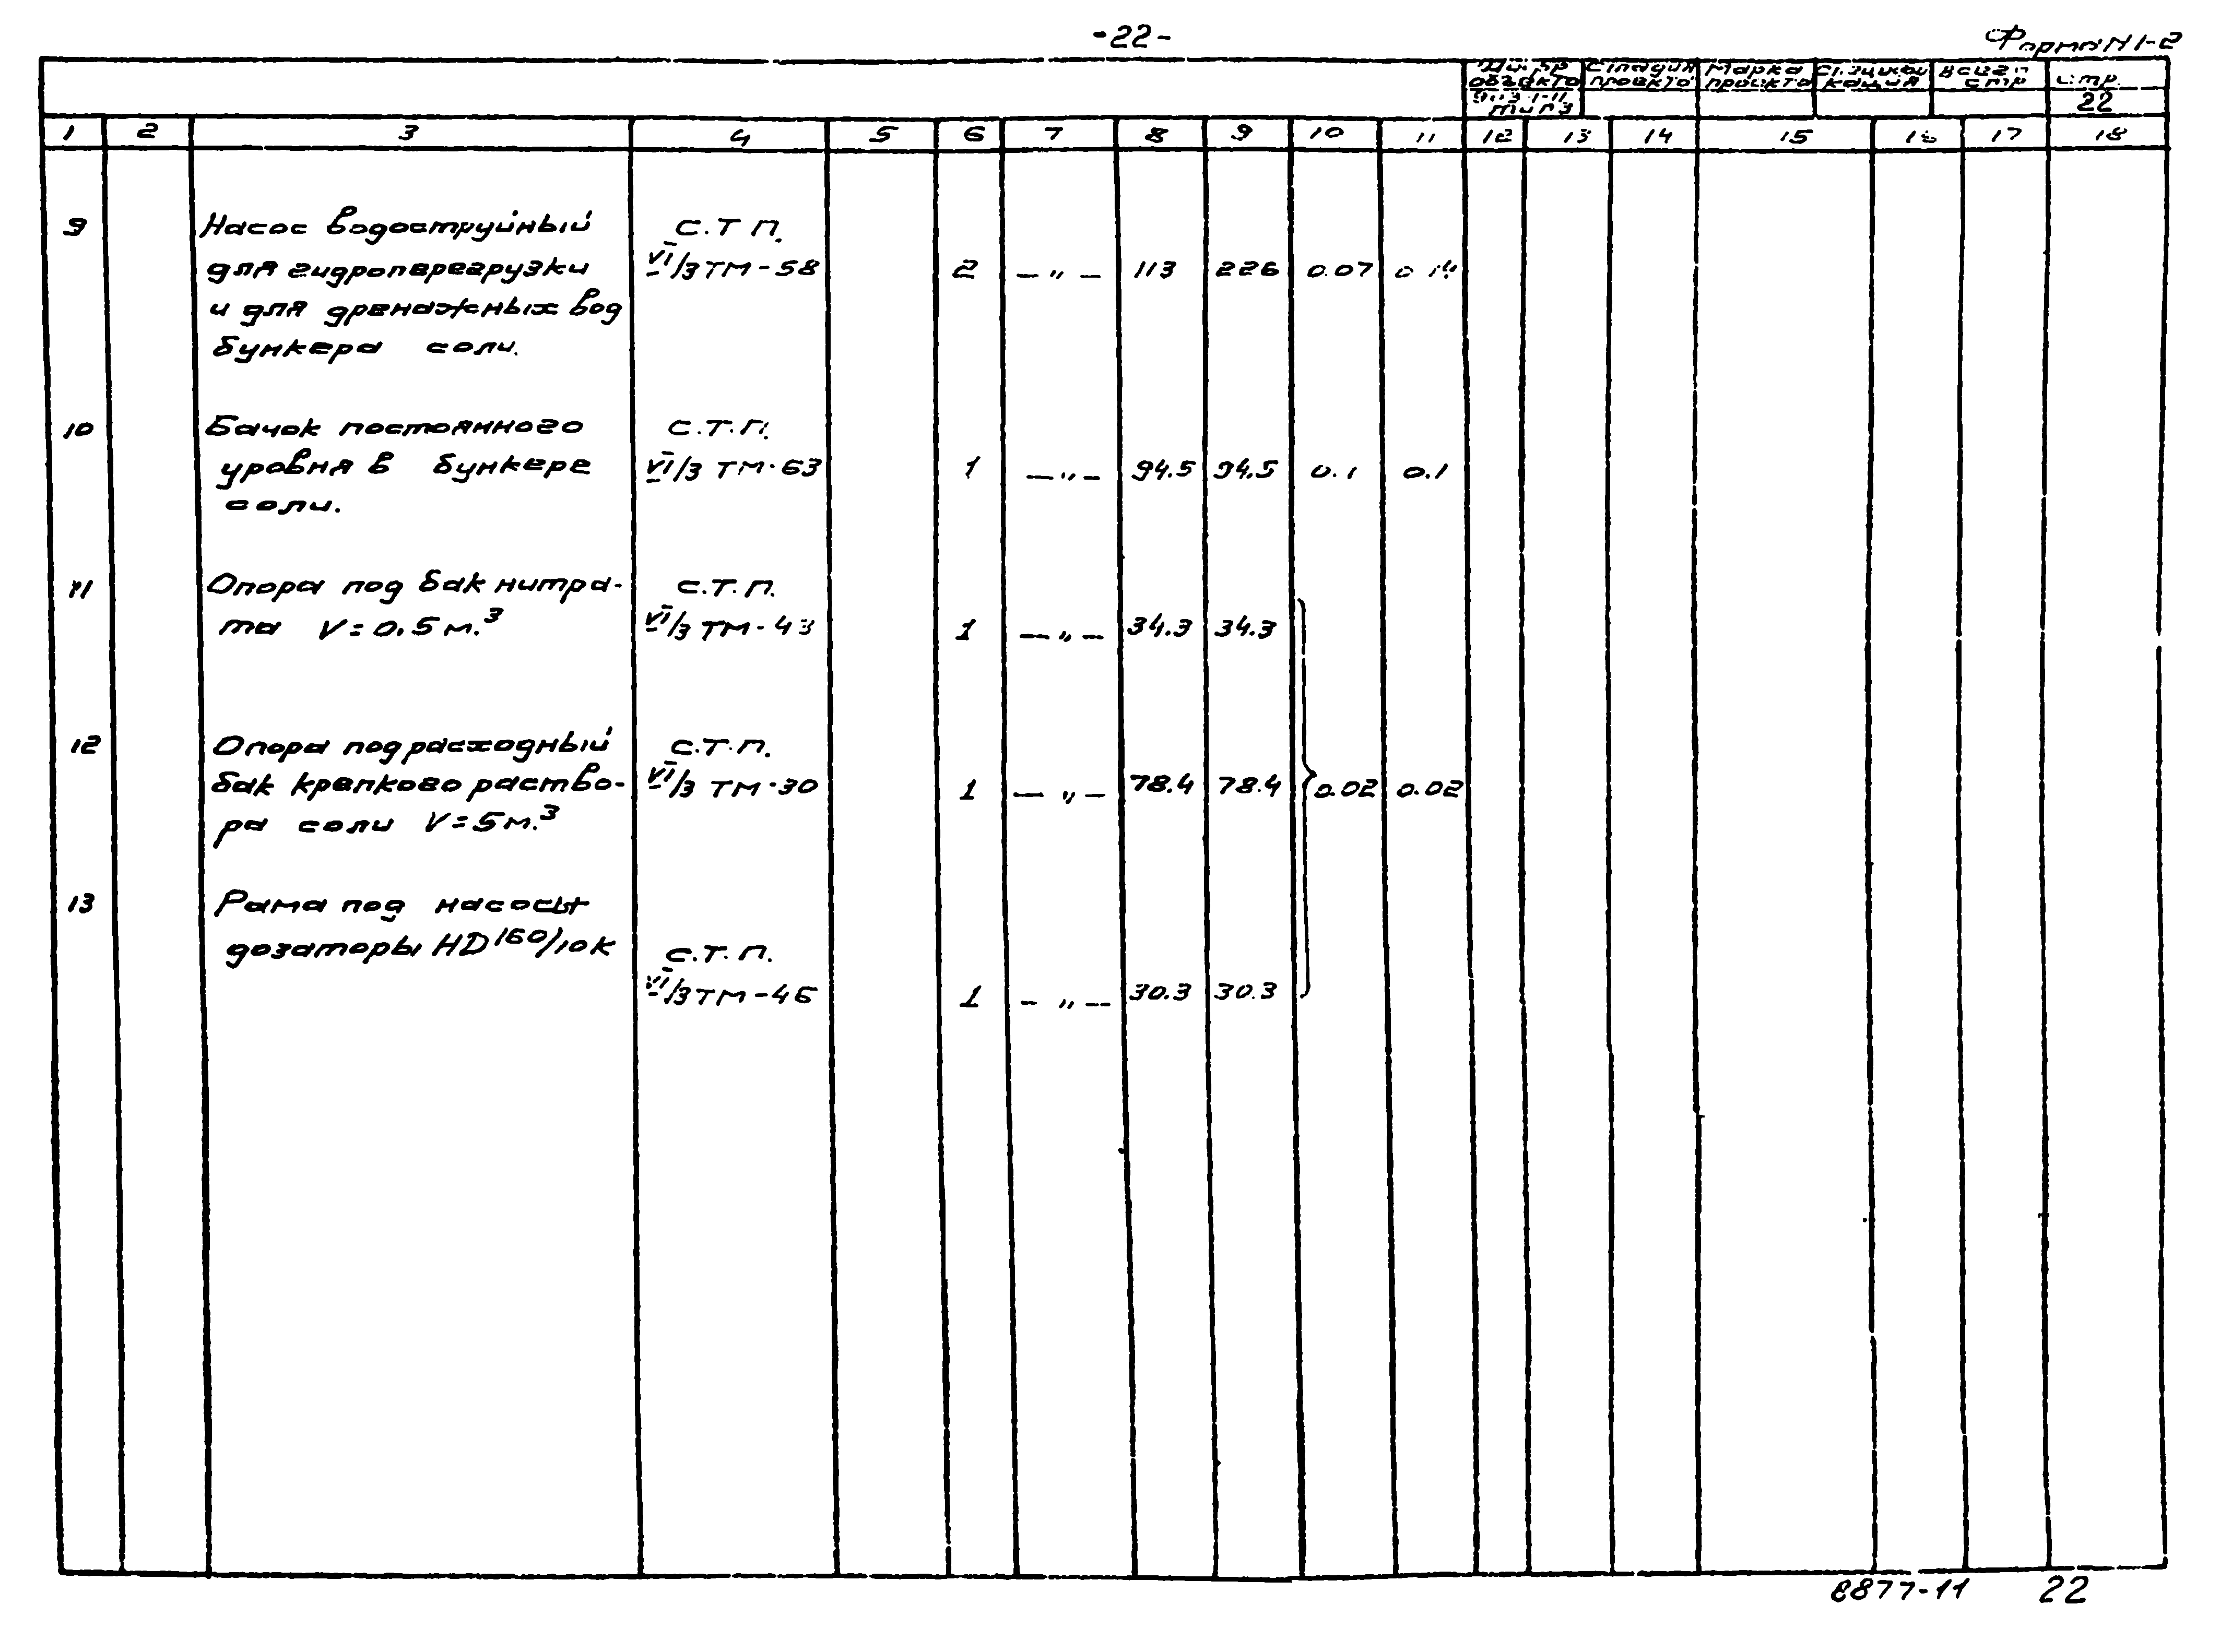 -22-
Форма N 1-2
Шифр объекта Стадия проекта Марка проекта Специфи кация Всего стр стр.
22
1 2 3 4 5 6 7 8 9 10 11 12 13 14 15 16 17 18
9 Насос водоструйный С.Т П.
для гидроперегрузки VI/3 ТМ-58 2 —"— 113 226 0.07 0.14
и для дренажных вод
бункера соли.
10 Бачок постоянного С.Т.П.
уровня в бункере VI/3 ТМ-63 1 —"— 94.5 94.5 0.1 0.1
соли.
11 Опора под бак нитра- С.Т.П.
та V=0.5м.³ VI/3 ТМ-43 1 —"— 34.3 34.3
12 Опора под расходный С.Т.П.
бак крепкого раство- VI/3 ТМ-30 1 —"— 78.4 78.4 0.02 0.02
ра соли V=5м.³
13 Рама под насосы
дозаторы НД 160/10К С.Т.П.
VI/3 ТМ-46 1 —"— 30.3 30.3
8877-11 22